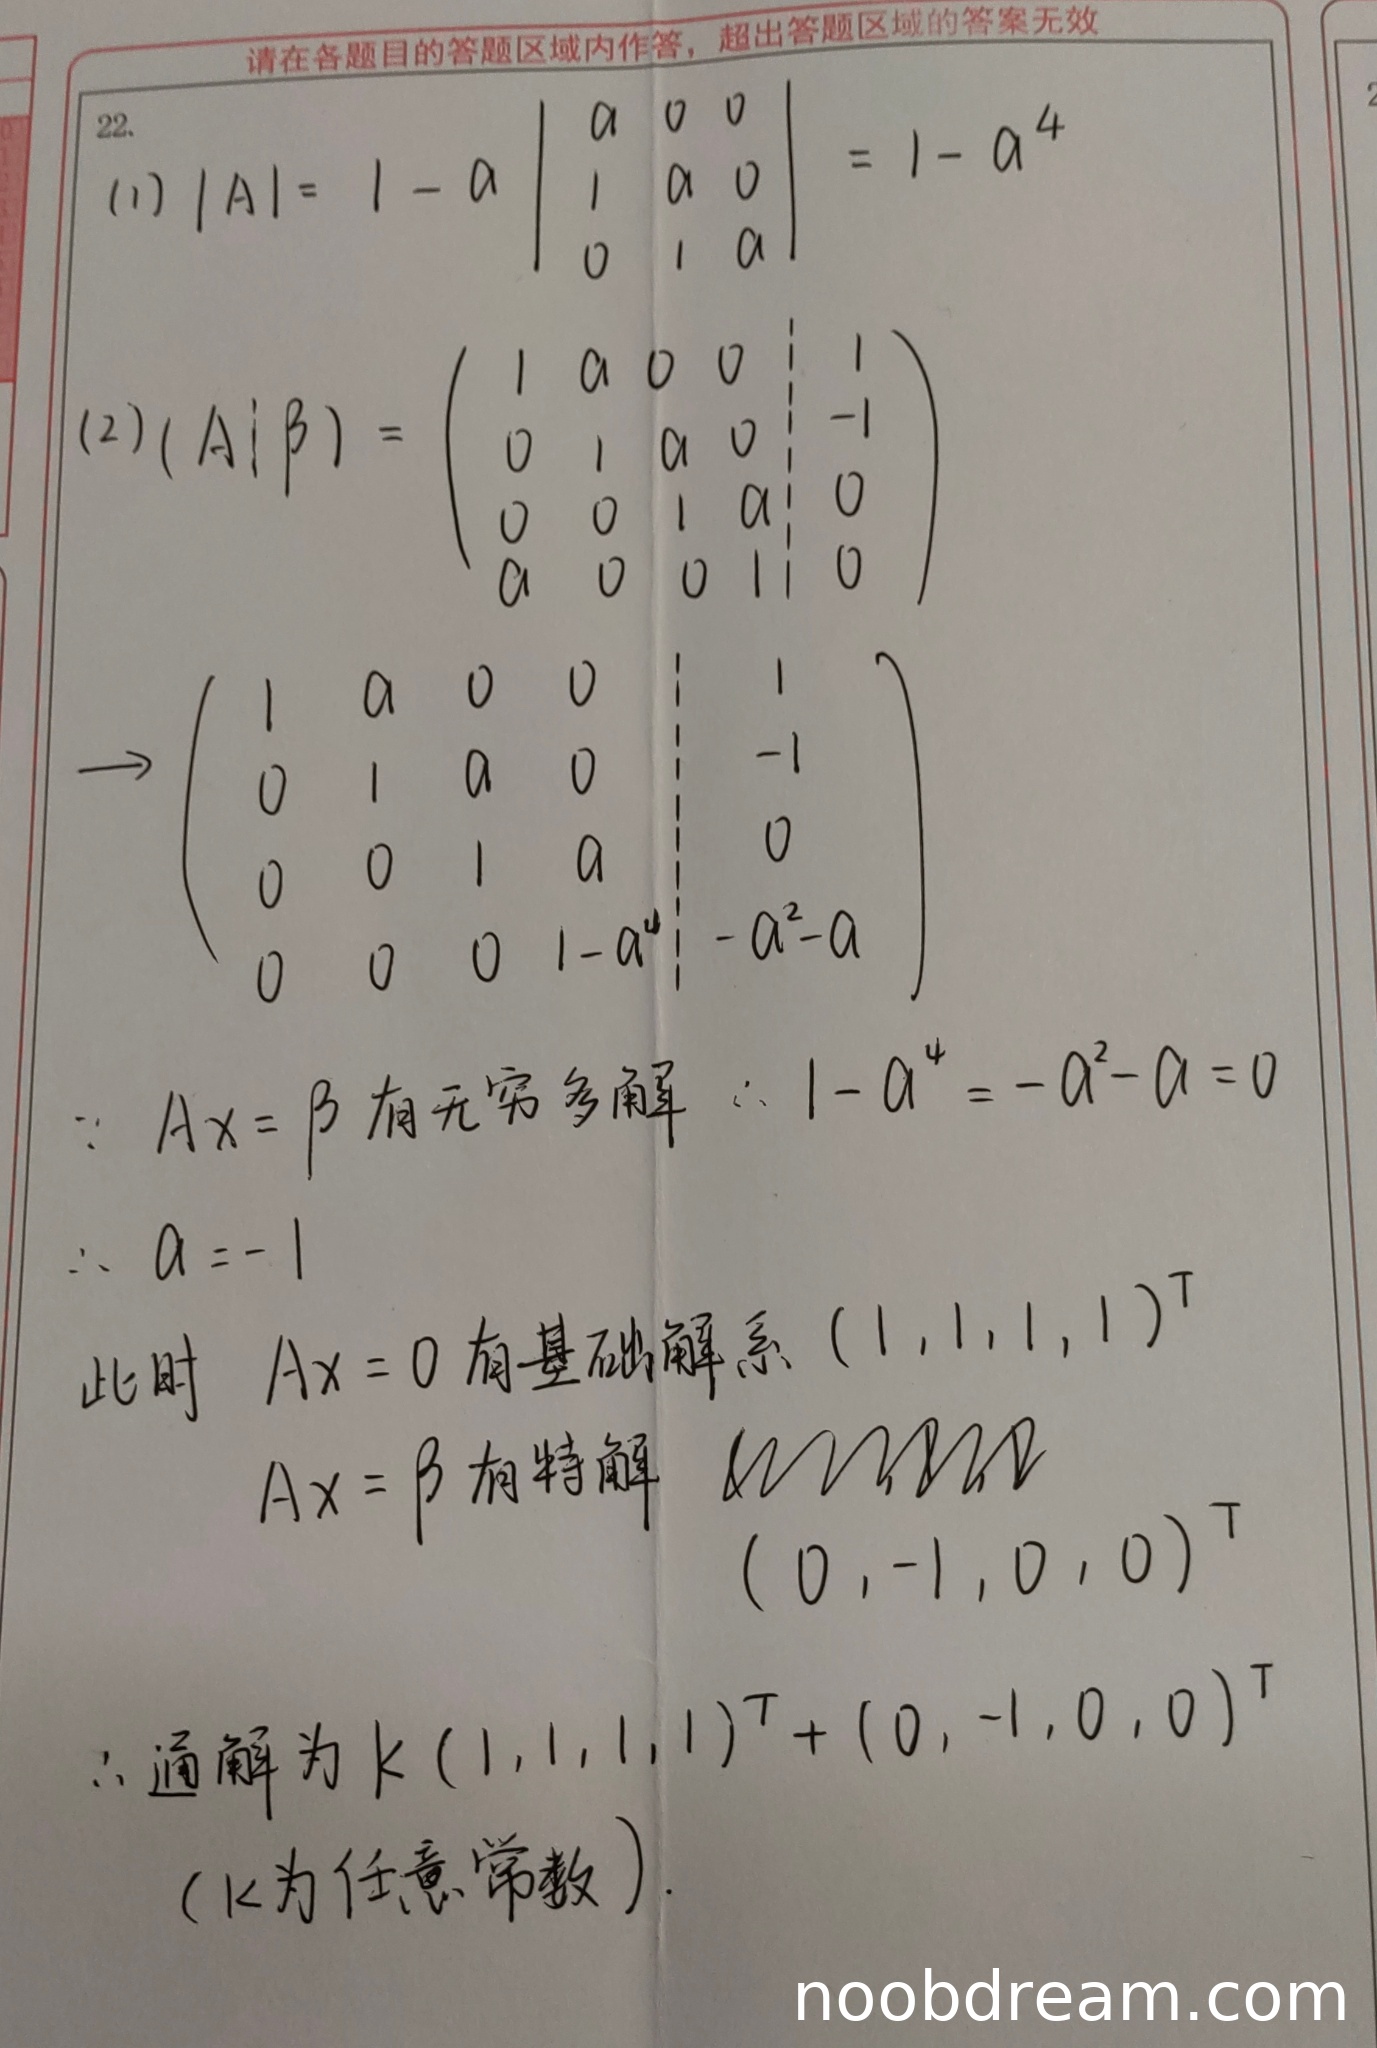 请在各题目的答题区域内作答，超出答题区域的答案无效
22.
(1) |A| = 1 - a | a 0 0 | = 1 - a⁴
1 a 0
0 1 a
(2) (A¦β) = ( 1 a 0 0 ¦ 1 )
0 1 a 0 ¦ -1
0 0 1 a ¦ 0
a 0 0 1 ¦ 0
→ ( 1 a 0 0 ¦ 1 )
0 1 a 0 ¦ -1
0 0 1 a ¦ 0
0 0 0 1-a⁴ ¦ -a²-a
∵ Ax = β 有无穷多解 ∴ 1 - a⁴ = -a² - a = 0
∴ a = -1
此时 Ax = 0 有基础解系 (1, 1, 1, 1)ᵀ
Ax = β 有特解
(0, -1, 0, 0)ᵀ
∴ 通解为 k (1, 1, 1, 1)ᵀ + (0, -1, 0, 0)ᵀ
(k为任意常数).
noobdream.com